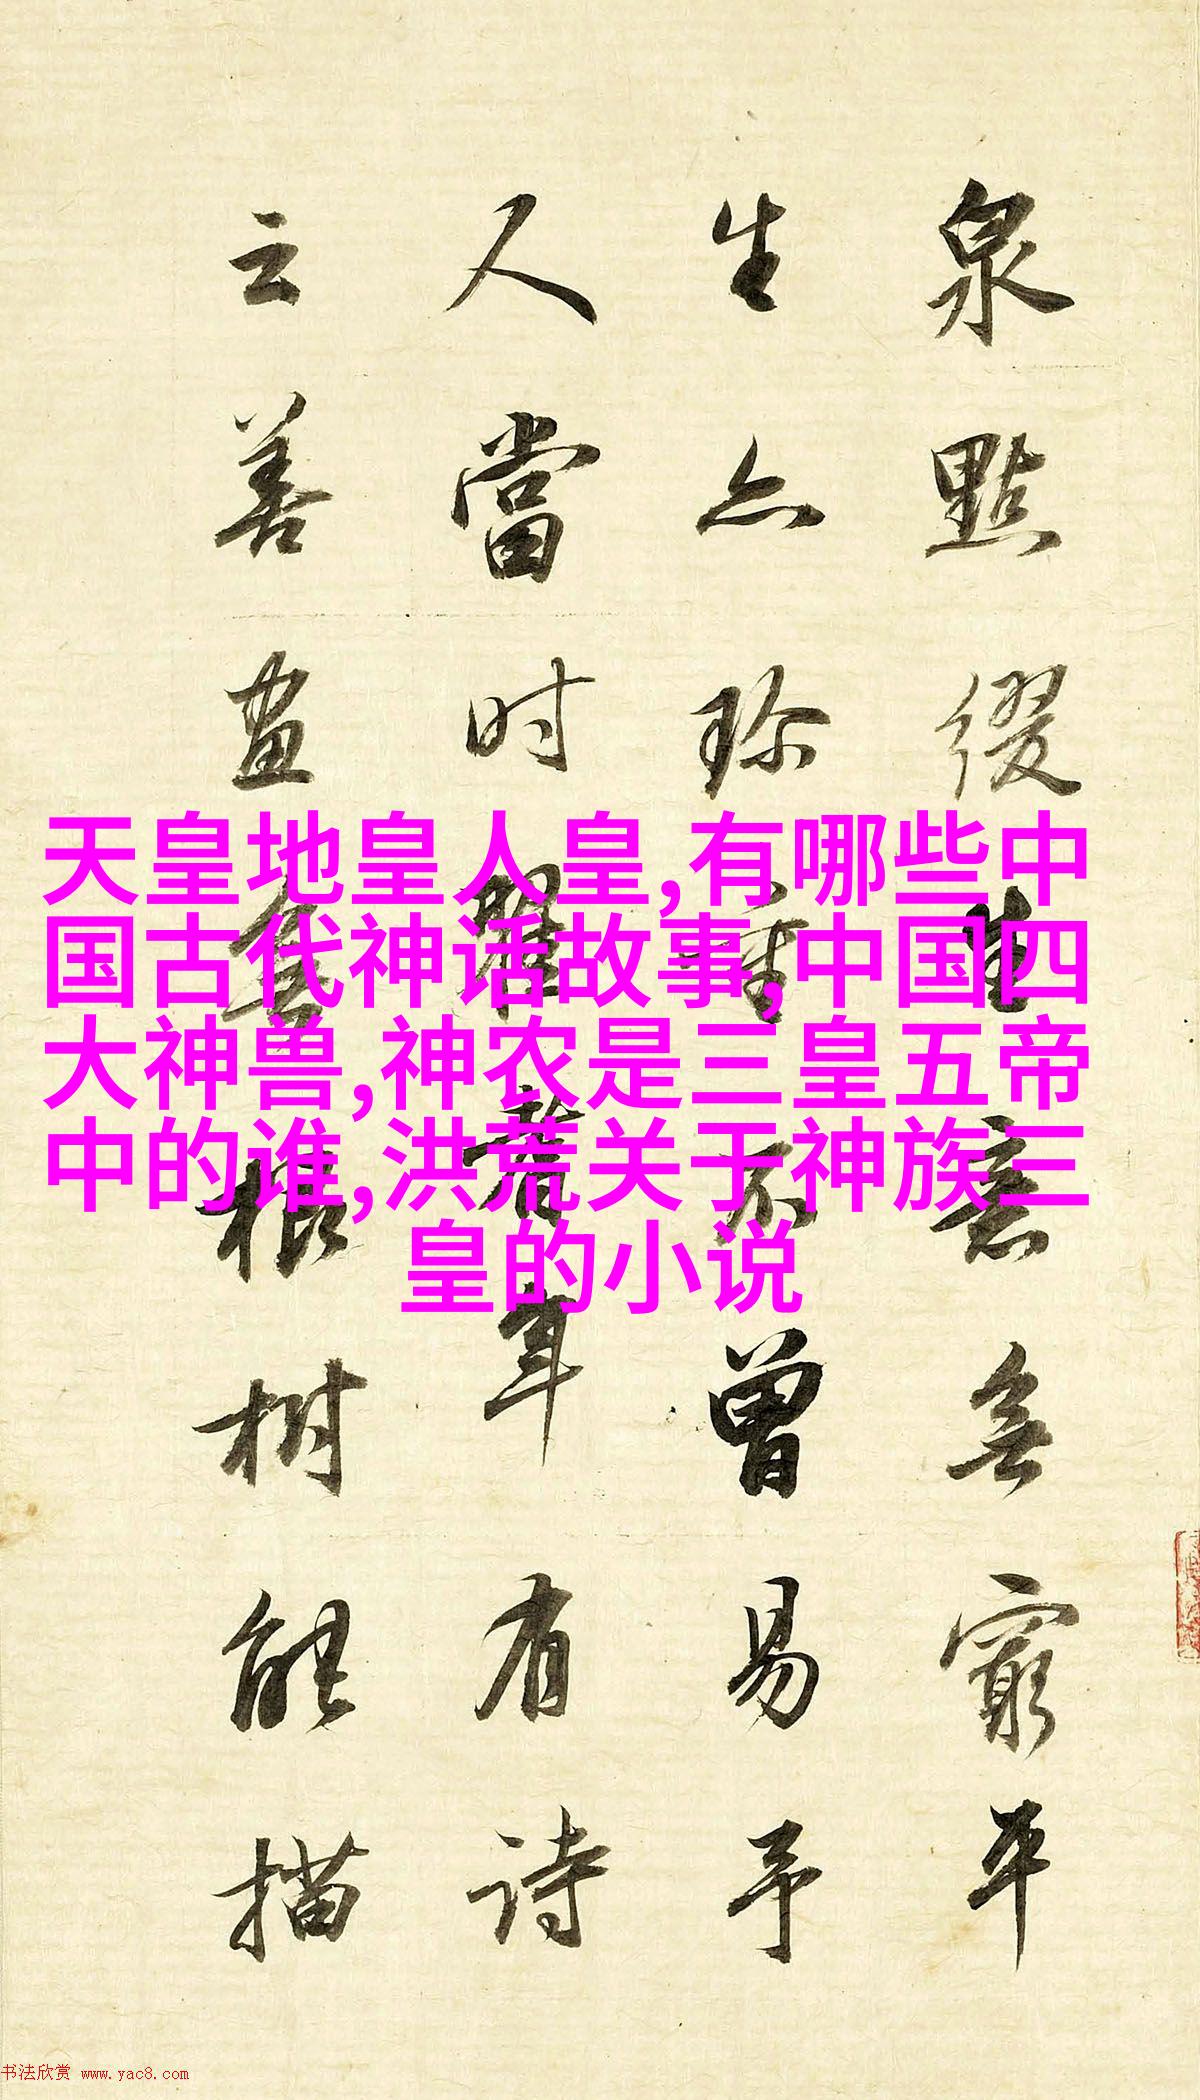 天皇地皇人皇,有哪些中
国古代神话故事,中国四
大神兽,神农是三皇五帝
中的谁,洪荒关于神族三
皇的小说
泉點綴生意無窮平
生亦珍重不曾易予
人當时有詩
云善畫無根樹能描
书法欣赏 www.yac8.com